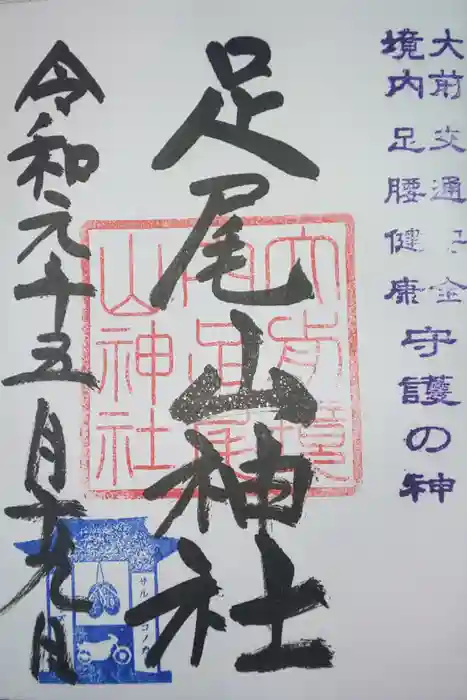 大前 交通安全
境内 足腰健康
守護の神
足尾山神社
令和元年五月十九日
大前境
内足尾
山神社